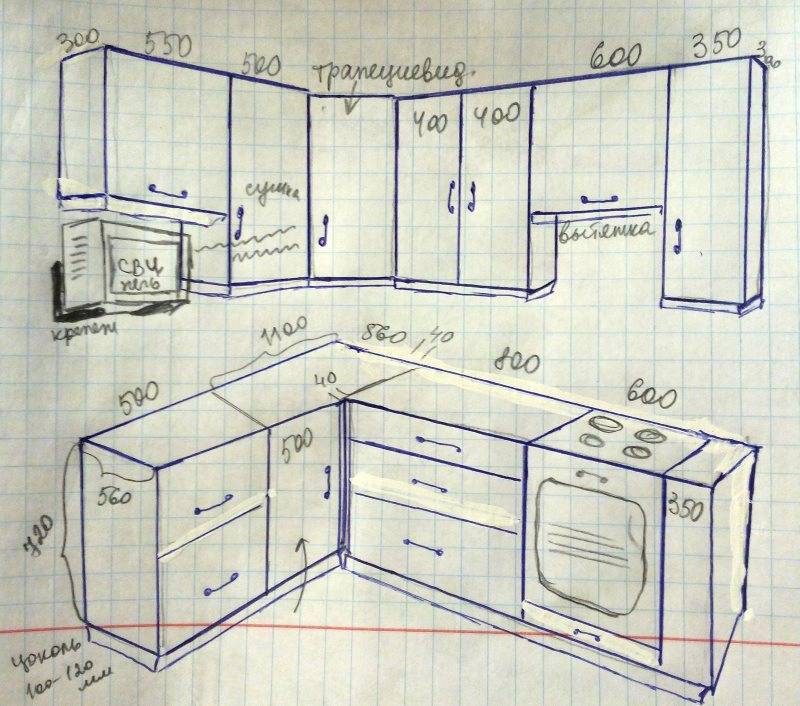 300
550
500
трапециевид.
600
350
400
400
сушка
вытяжка
СВЧ
печь
крепеж
1100
560
40
800
500
40
600
500
560
350
720
цоколь
100-120
мм